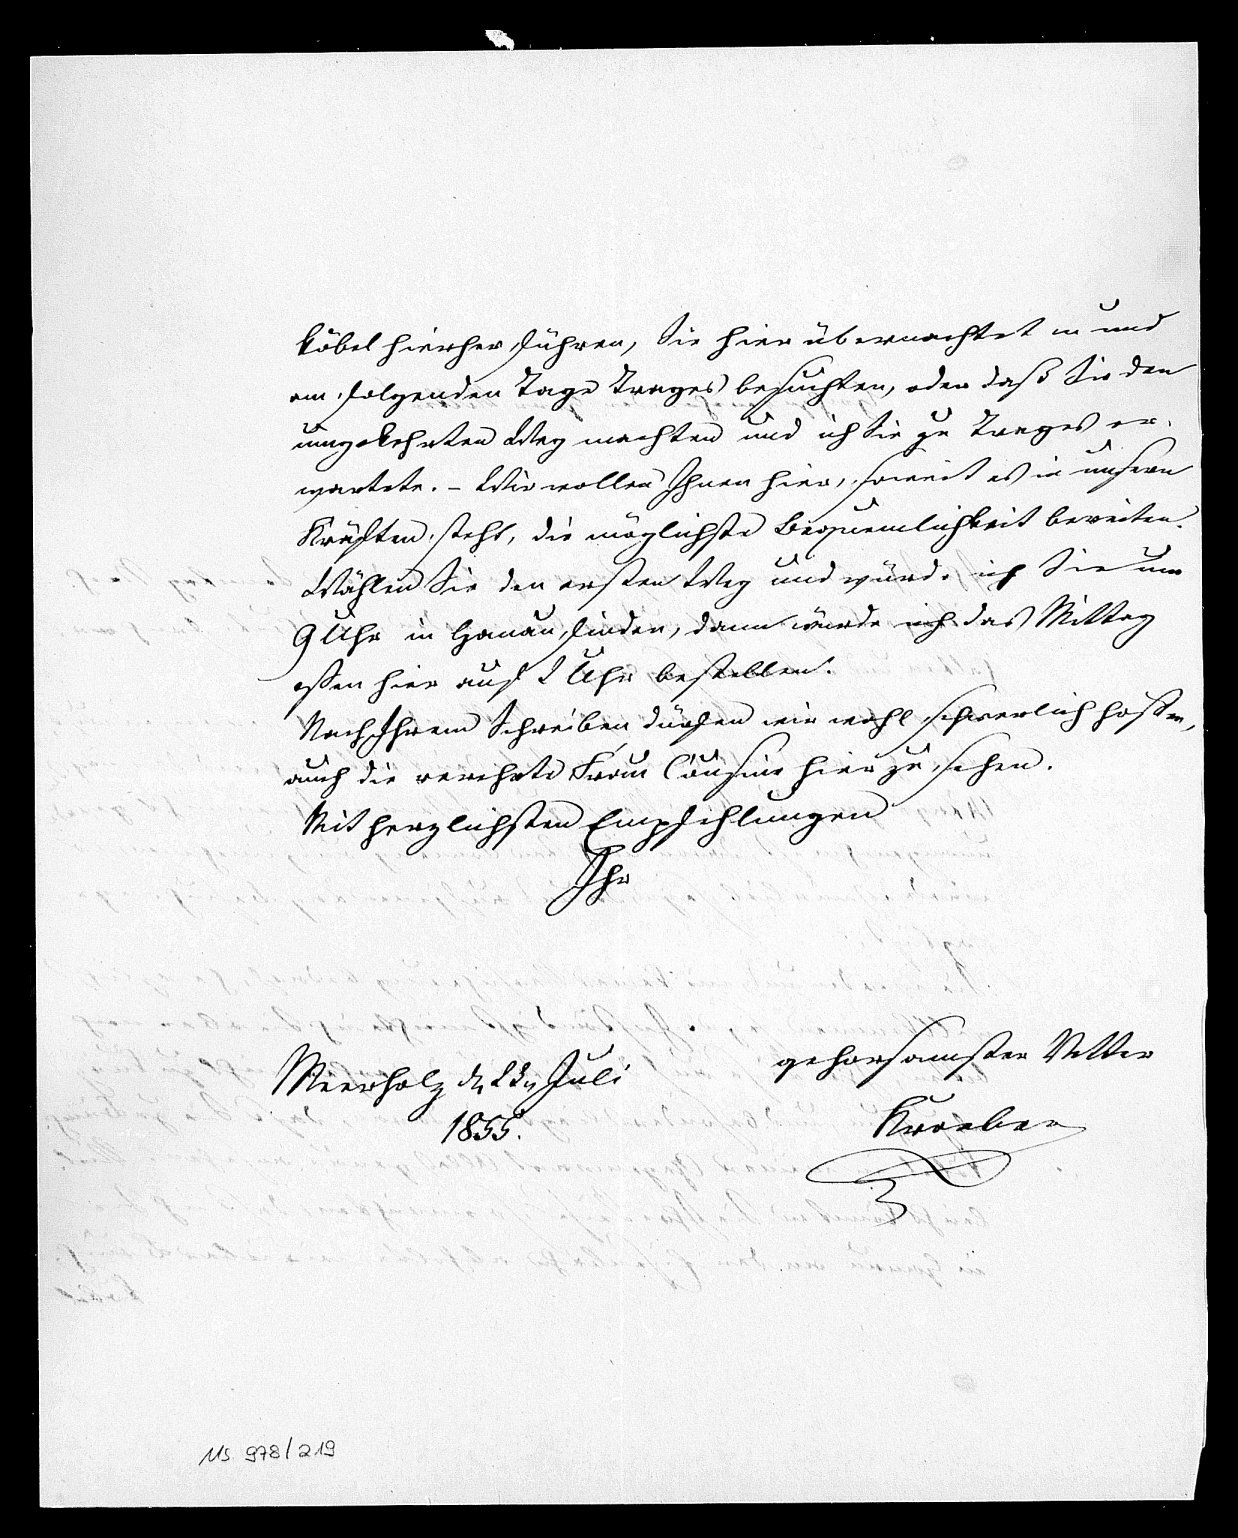 köbel hierher führen, Sie hier übernachteten und
am folgenden Tage Trages besuchten, oder daß Sie den
umgekehrten Weg machten und ich Sie zu Trages er-
wartete. – Wir wollen Ihnen hier, soweit es in unsern
Kräften steht, die möglichste Bequemlichkeit bereiten.
Wählen Sie den ersten Weg und würde ich Sie um
9 Uhr in Hanau finden, dann würde ich das Mittag
essen hier auf 2 Uhr bestellen.
Nach Ihrem Schreiben dürfen wir wohl schwerlich hoffen,
auch die verehrte Frau Cousine hier zu sehen.
Mit herzlichsten Empfehlungen
Ihr
gehorsamster Vetter
Meerholz d. 23. Juli
1855.
Kroeber
Ms 978/219